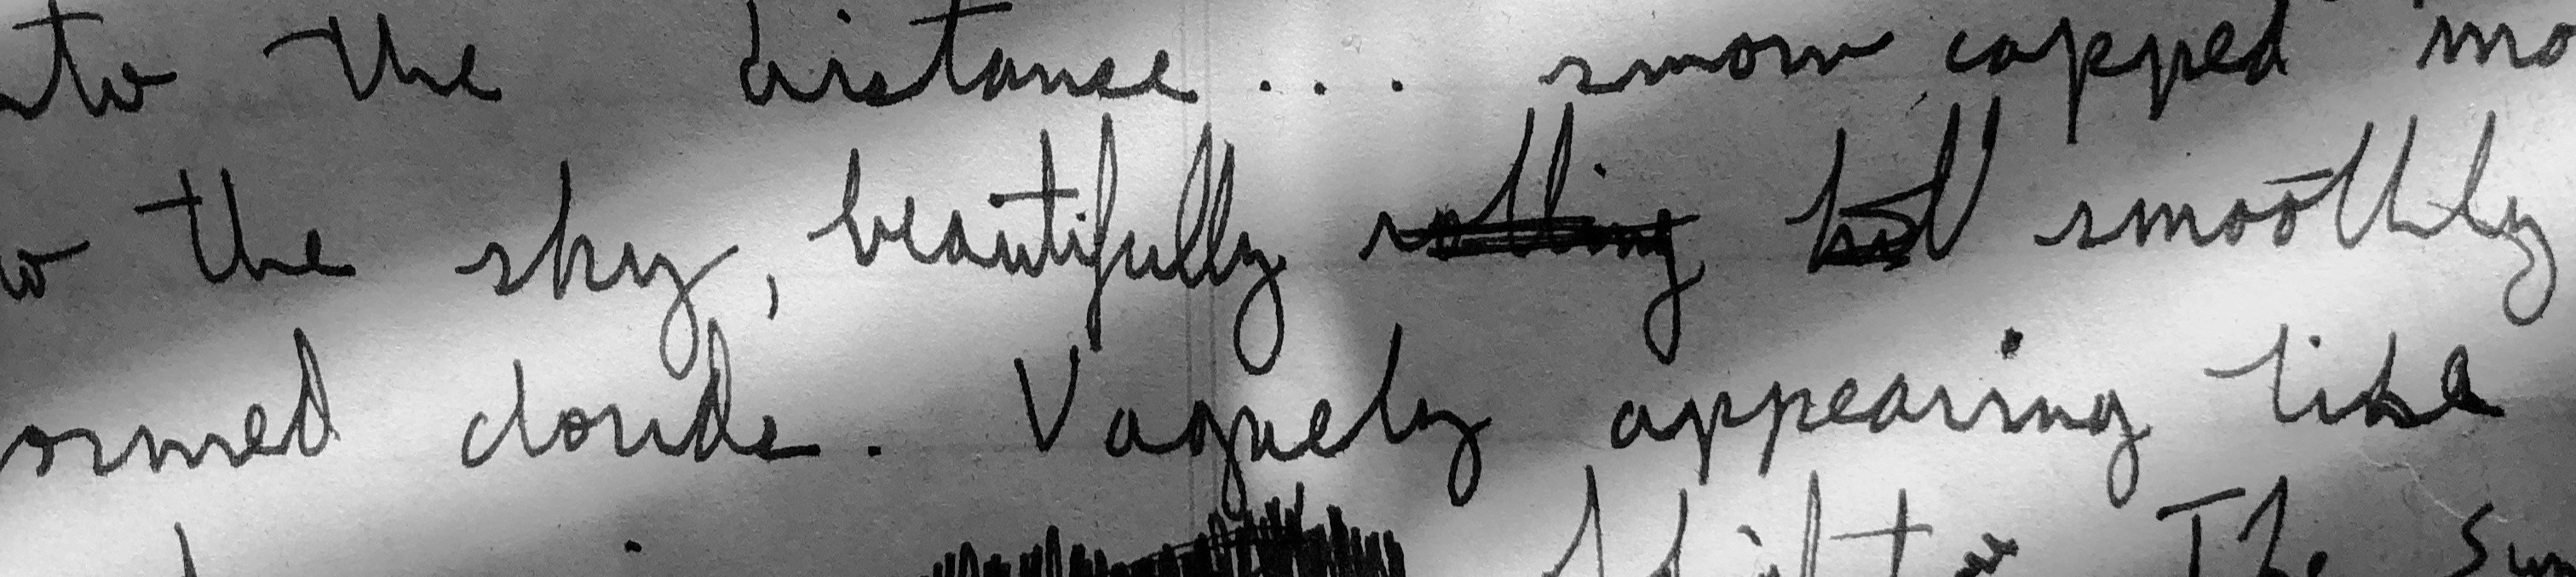 to the distance... snow capped mo
the sky, beautifully rolling smoothly
ormed clouds. Vaguely appearing like
The sun